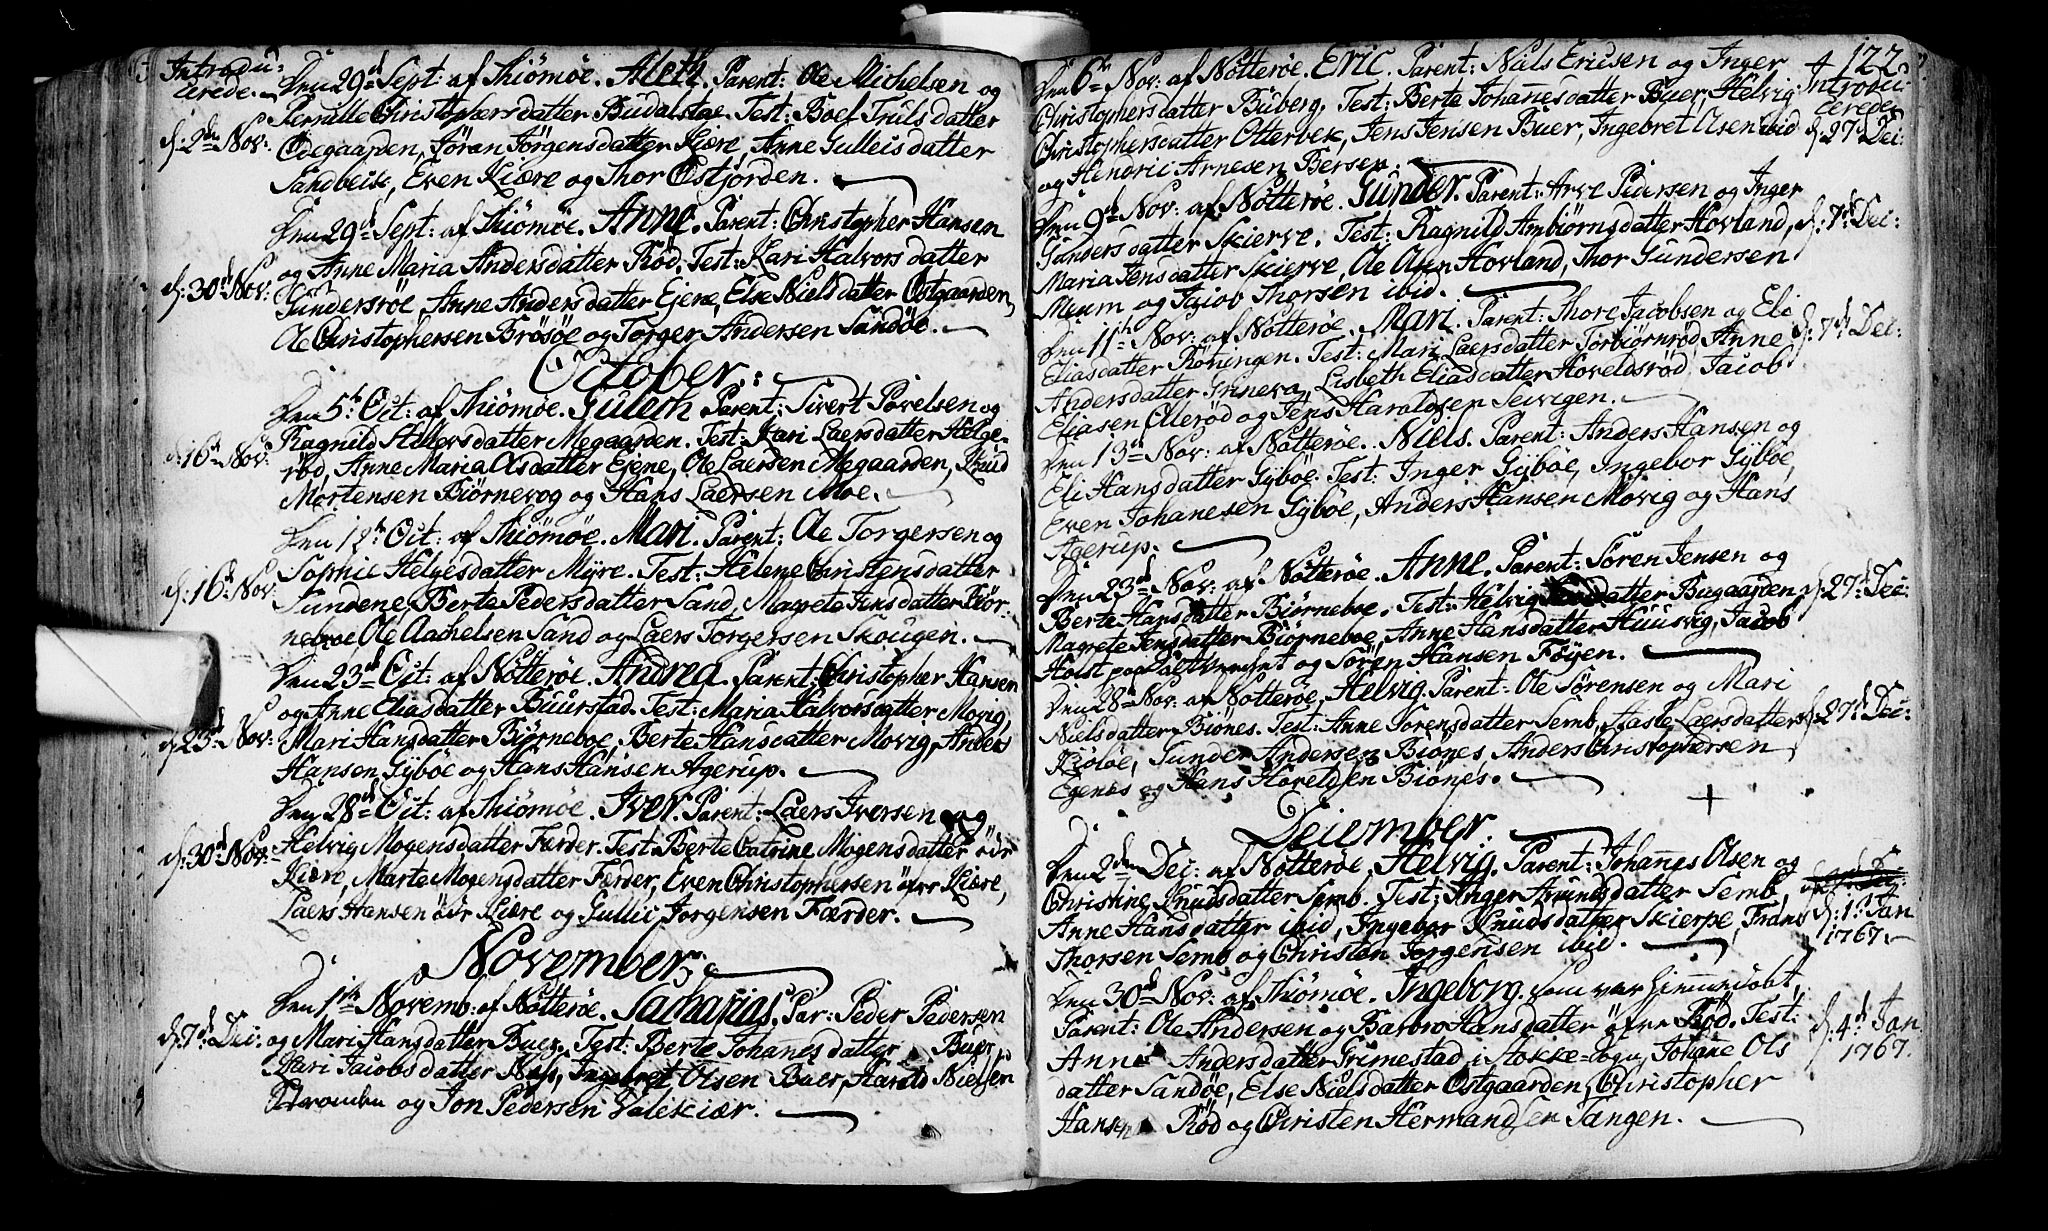 Introdu=
cerede.
Den 29de Sept: af Thiömöe. Aleth. Parent: Ole Michelsen og
Pernille Christophersdatter Budalstae. Test: Boel Trulsdatter
d: 2den Nov: Ödegaarden, Jöran Jörgensdatter Kiære, Anne Gulleisdatter
Sandbeik, Even Kiære og Thor Östjorden.
Den 29de Sept: af Thiömöe. Anne. Parent: Christopher Hansen
og Anne Maria Andersdatter Röd. Test: Kari Halvorsdatter
d: 30te Nov: Gundersröe, Anne Andersdatter Ejene, Else Nielsdatter Östgaarden,
Ole Christophersen Brösöe og Torger Andersen Sandöe.
October:
Den 5te Oct: af Thiömöe. Gulech. Parent: Sivert Povelsen og
Ragnild Hellersdatter Megaarden. Test: Kari Laersdatter Helge=
d: 16te Nov: röd, Anne Maria Olsdatter Ejene, Ole Laersen Megaarden, Knud
Mortensen Biörnevog og Hans Laersen Moe.
Den 12te Oct: af Thiömöe. Mari. Parent: Ole Torgersen og
Sophie Helgesdatter Myre. Test: Helene Christensdatter
d: 16de Nov: Sundene, Berte Pedersdatter Sand, Magrete Jensdatter Biör=
neboe Ole Aachelsen Sand og Laers Torgersen Skougen.
Den 23de Oct: af Nötteröe. Andrea. Parent: Christopher Hansen
og Anne Eliasdatter Buurstad. Test: Maria Halvorsdatter Movig,
d: 23de Nov: Mari Hansdatter Biörneboe, Berte Hansdatter Movig, Anders
Hansen Gÿböe og Hans Hansen Agerup.
Den 28de Oct: af Thiömöe. Iver. Parent: Laers Iversen og
Helvig Mogensdatter Færder. Test: Berte Catrine Mogensdatter öde
d: 30te Nov: Kiære, Marte Mogensdatter Færder, Even Christophersen öfre Kiære,
Laers Hansen öde Kiære og Gullic Jörgensen Færder.
November:
Den 1ste Novemb: af Nötteröe. Zacharias. Par: Peder Pedersen
d: 7de Dec: og Mari Hansdatter Buer. Test: Berte Johanesdatter Buer,
Kari Jacobsdatter Næss, Ingebret Olsen Buer, Harald Nielsen
og Jon Pedersen Valekiær.
122
Introdu:
cerede.
Den 6te Nov: af Nötteröe. Eric. Parent: Niels Ericsen og Inger
Christophersdatter Buberg. Test: Berte Johanesdatter Buer, Helvig
Christophersdatter Otterbek, Jens Jensen Buer, Ingebret Olsen ibid d: 27de Dec:
og Hendric Arnesen Bersen.
Den 9de Nov: af Nötteröe. Gunder. Parent: Arve Pedersen og Inger
Gundersdatter Skierve. Test: Ragnild Ambiörnsdatter Hovland, d: 7de Dec:
Maria Jensdatter Skierve, Ole Olsen Hovland, Thor Gundersen
Meum og Jacob Thorsen ibid.
Den 11te Nov: af Nötteröe. Mari. Parent: Thore Jacobsen og Eli
Eliasdatter Röningen. Test: Mari Laersdatter Torbiörnröd, Anne d: 7de Dec:
Andersdatter Grinevog, Lisbeth Eliasdatter Hoveldsröd, Jacob
Eliasen Olleröd og Jens Haraldsen Seivigen.
Den 13de Nov: af Nötteröe. Niels. Parent: Anders Hansen og
Eli Hansdatter Gÿböe. Test: Inger Gÿböe, Ingebor Gÿböe,
Even Johanesen Gÿböe, Anders Hansen Movig og Hans
Agerup.
Den 23de Nov: af Nötteröe. Anne. Parent: Sören Jensen og
Berte Hansdatter Biörneboe. Test: Helvig datter Bugaarden d: 27de Dec:
Magrete Jensdatter Biörneboe, Anne Hansdatter Huusvig, Jacob
Holst paa og Sören Hansen Föyen.
Den 28de Nov: af Nötteröe. Helvig. Parent: Ole Sörensen og Mari
Nielsdatter Biönes. Test: Anne Sorensdatter Semb, Aaste Laersdatter d: 27de Dec:
Kiölöe, Gunder Andersen Biönes, Anders Christophersen
Egenes og Hans Hoveldsen Biönes.
+
December.
Den 2den Dec: af Nötteröe. Helvig. Parent: Johanes Olsen og
Christine Knudsdatter Semb. Test: Inger Amundsdatter Semb,
Anne Hansdatter ibid, Ingebor Knudsdatter Skierpe, Frans d: 1ste Jan
Thorsen Semb og Christen Jörgensen ibid. 1767.
Den 30te Nov: af Thiömöe. Ingeborg. som var hiemmedöbt,
Parent: Ole Andersen og Barbro Hansdatter öfre Röd. Test: d: 4de Jan
Anne Andersdatter Grimestad i Stokke-Sogn, Johane Ols 1767.
datter Sandöe, Else Nielsdatter Östgaarden, Christopher
Hansen Röd og Christen Hermandsen Tangen.